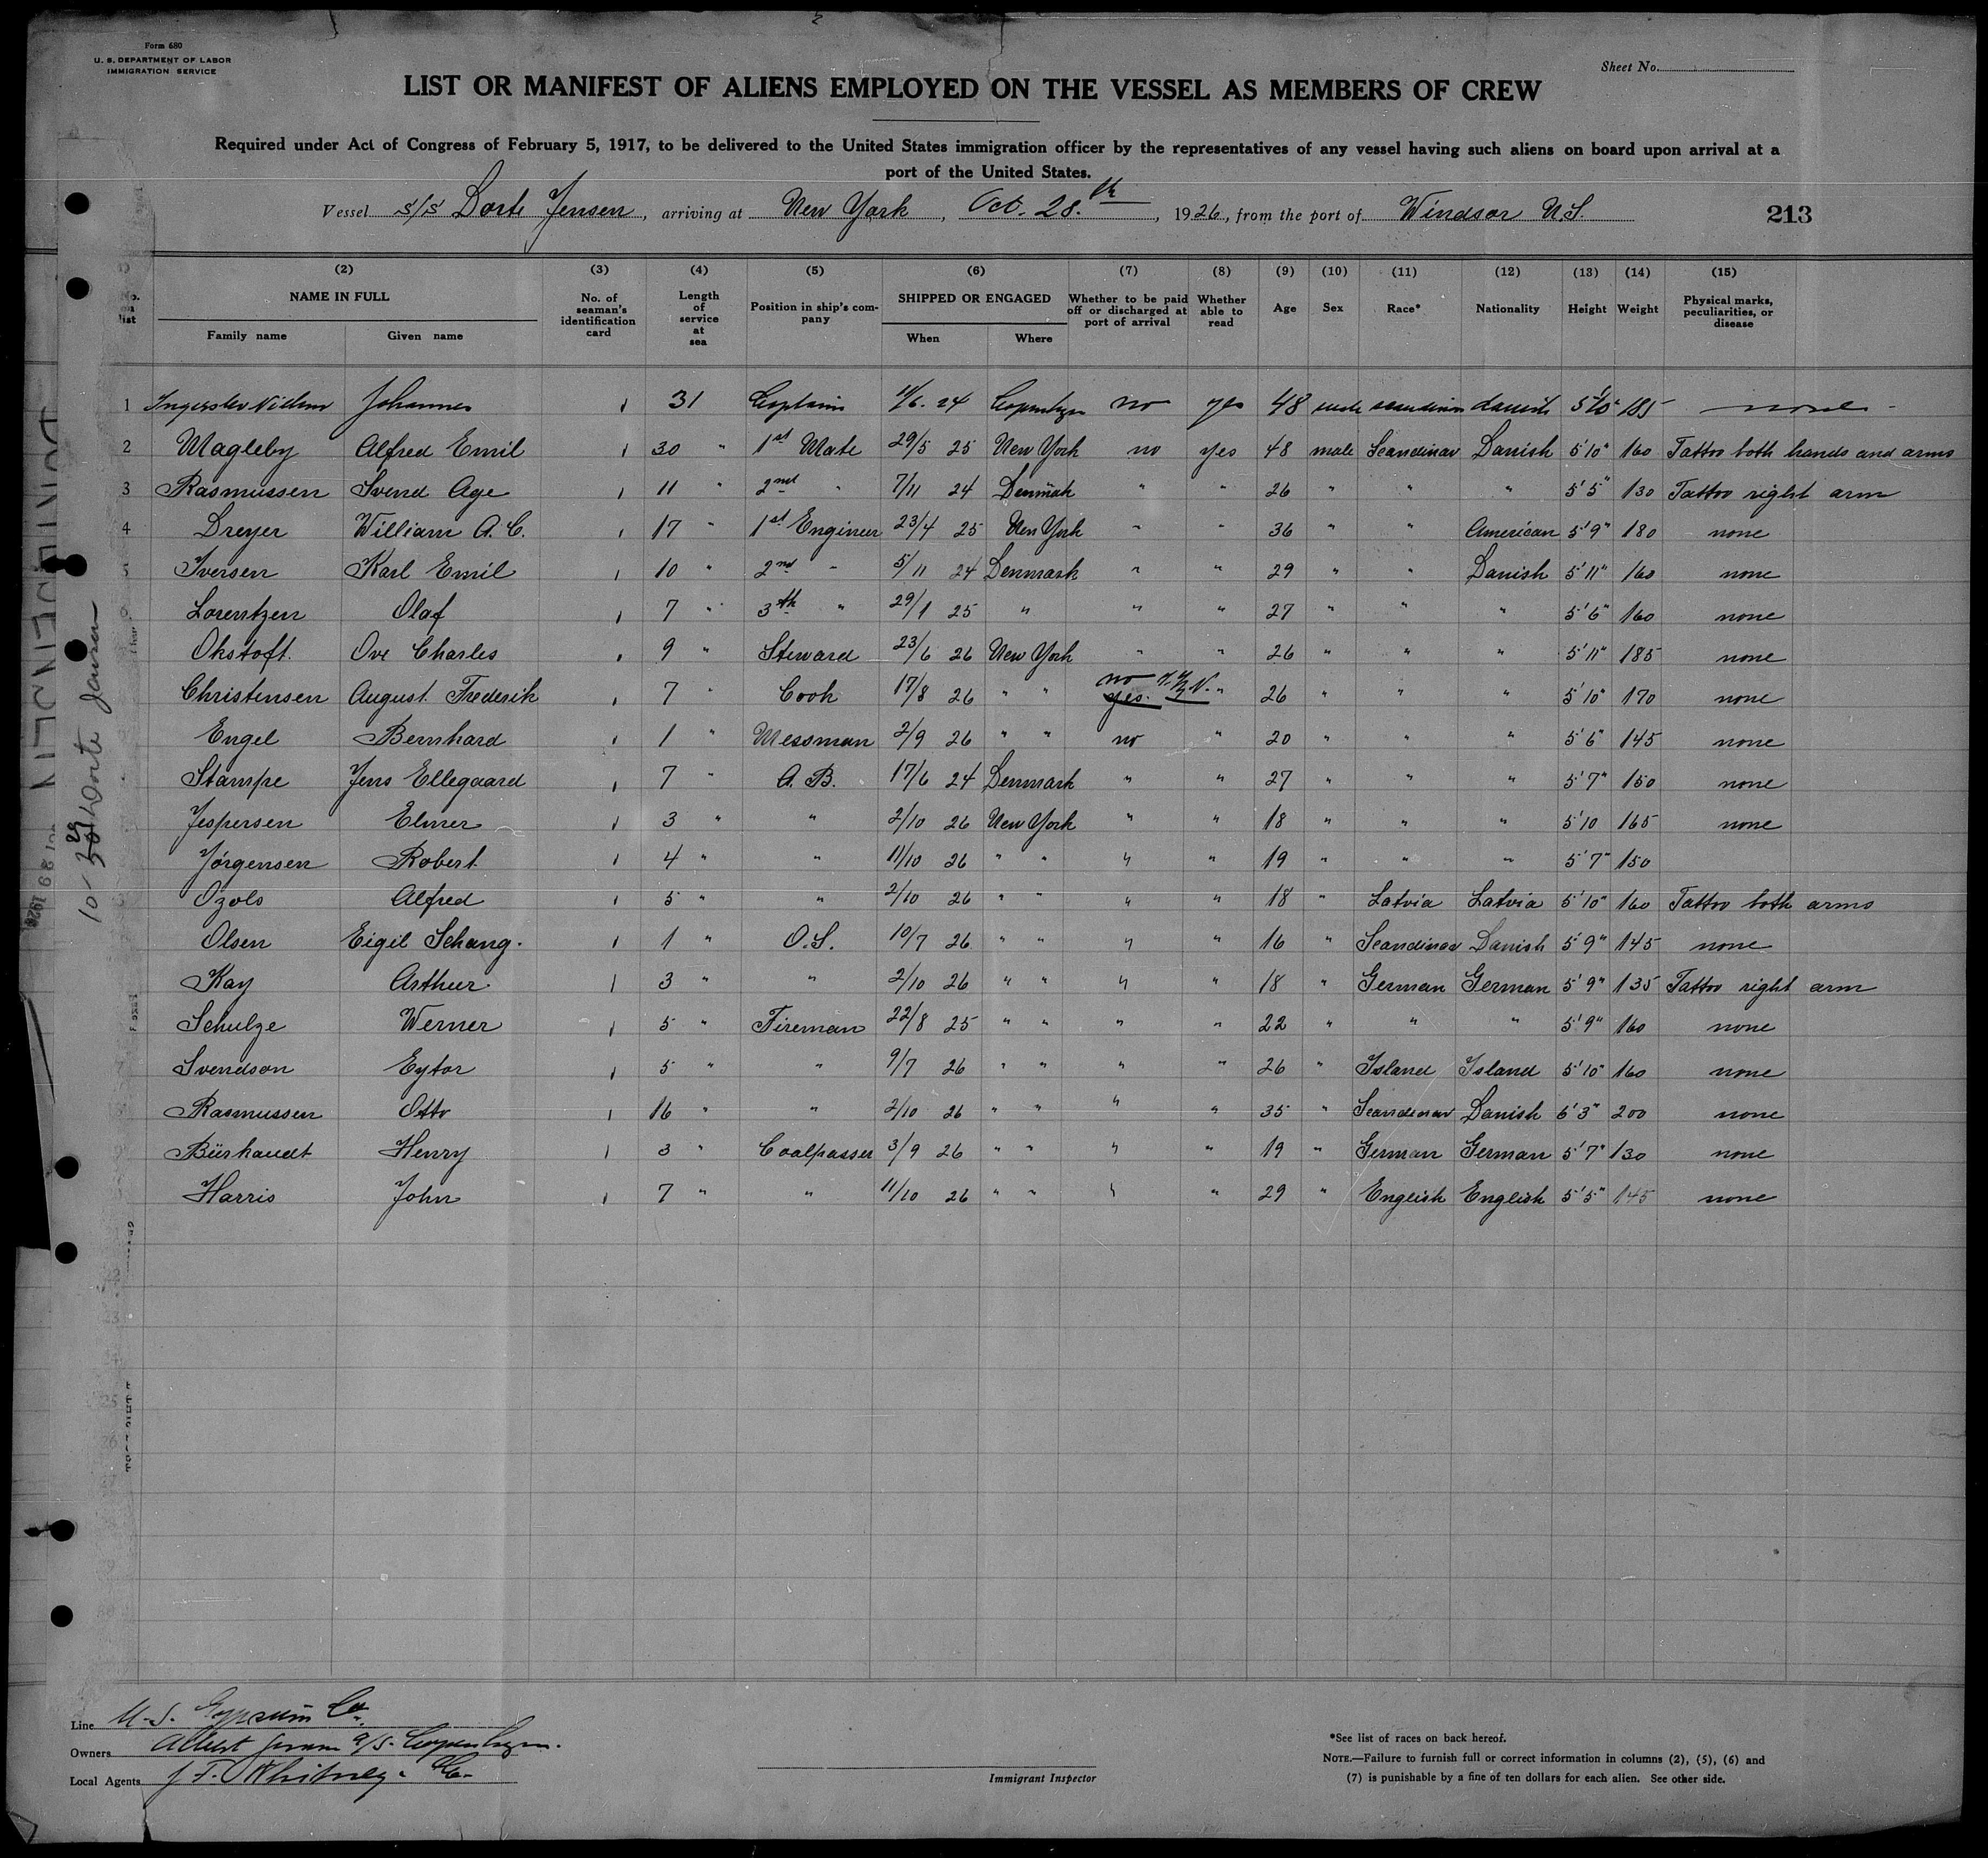 Form 680
U. S. DEPARTMENT OF LABOR
IMMIGRATION SERVICE
Sheet No.
LIST OR MANIFEST OF ALIENS EMPLOYED ON THE VESSEL AS MEMBERS OF CREW
Required under Act of Congress of February 5, 1917, to be delivered to the United States immigration officer by the representatives of any vessel having such aliens on board upon arrival at a
port of the United States.
Vessel S/S Dorte Jensen, arriving at New York, Oct. 28.th, 1926, from the port of Windsor N.S.
213
(2) (3) (4) (5) (6) (7) (8) (9) (10) (11) (12) (13) (14) (15)
No. on list NAME IN FULL Family name Given name No. of seaman's identification card Length of service at sea Position in ship's company SHIPPED OR ENGAGED When Where Whether to be paid off or discharged at port of arrival Whether able to read Age Sex Race* Nationality Height Weight Physical marks, peculiarities, or disease
1 Johannes 31 Captain 24 no yes 48 male danish 5'10" 185 none
2 Magleby Alfred Emil 30 " 1st Mate 29/5 25 New York no yes 48 male Scandinav Danish 5'10" 160 Tattoo both hands and arms
3 Rasmussen Svend Age 11 " 2nd " 7/11 24 Denmark " " 26 " " " 5'5" 130 Tattoo right arm
4 Dreyer William A. C. 17 " 1st Engineer 23/4 25 New York " " 36 " " American 5'9" 180 none
5 Iversen Karl Emil 10 " 2nd " 5/11 24 Denmark " " 29 " " Danish 5'11" 160 none
Lorentzen Olaf 7 " 3th " 29/1 25 " " " 27 " " " 5'6" 160 none
Okstoft. Ove Charles 9 " Steward 23/6 26 New York " " 26 " " " 5'11" 185 none
Christensen August Frederik 7 " Cook 17/8 26 " " no yes. " 26 " " " 5'10" 170 none
Engel Bernhard 1 " Messman 2/9 26 " " no " 20 " " " 5'6" 145 none
Stampe Jens Ellegaard 7 " A. B. 17/6 24 Denmark " " 27 " " " 5'7" 150 none
Jespersen Elmer 3 " " 2/10 26 New York " " 18 " " " 5'10 165 none
Jørgensen Robert 4 " " 11/10 26 " " " " 19 " " " 5'7" 150
Ozols Alfred 5 " " 2/10 26 " " " " 18 " Latvia Latvia 5'10" 160 Tattoo both arms
Olsen Eigil Schang. 1 " O.S. 10/7 26 " " " " 16 " Scandinav Danish 5'9" 145 none
Kay Arthur. 3 " " 2/10 26 " " " " 18 " German German 5'9" 135 Tattoo right arm
Schulze Werner 5 " Fireman 22/8 25 " " " " 22 " " " 5'9" 160 none
Svendson Eytor 5 " " 9/7 26 " " " " 26 " Island Island 5'10" 160 none
Rasmussen Otto 16 " " 2/10 26 " " " " 35 " Scandinav Danish 6'3" 200 none
Henry 3 " Coalpasser 3/9 26 " " " " 19 " German German 5'7" 130 none
Harris John 7 " " 11/10 26 " " " " 29 " English English 5'5" 145 none
Dorte Jensen
Line U.S. Gypsum Co.
Owners Albert Jensen A/S. Copenhagen.
Local Agents J. T. Whitney & Co.
Immigrant Inspector
*See list of races on back hereof.
NOTE.—Failure to furnish full or correct information in columns (2), (5), (6) and
(7) is punishable by a fine of ten dollars for each alien. See other side.